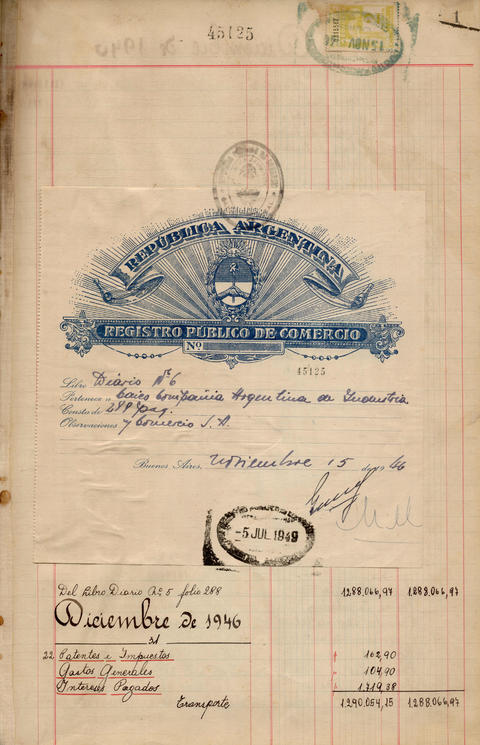 45125
1
15 NOV
REPÚBLICA ARGENTINA
REGISTRO PÚBLICO DE COMERCIO
Nº
45125
Libro Diario Nº 6
Pertenece a Compañia Argentina de Industria
Consta de pag.
Observaciones y Comercio S.A.
Buenos Aires, Noviembre 15 de 1946
-5 JUL 1949
Del Libro Diario Nº 5 folio 288 1288.066,97 1.288.066,97
Diciembre de 1946
31
22 Patentes e Impuestos 162,90
Gastos Generales 104,90
Intereses Pagados 1.719,38
Transporte 1.290.054,15 1.288.066,97